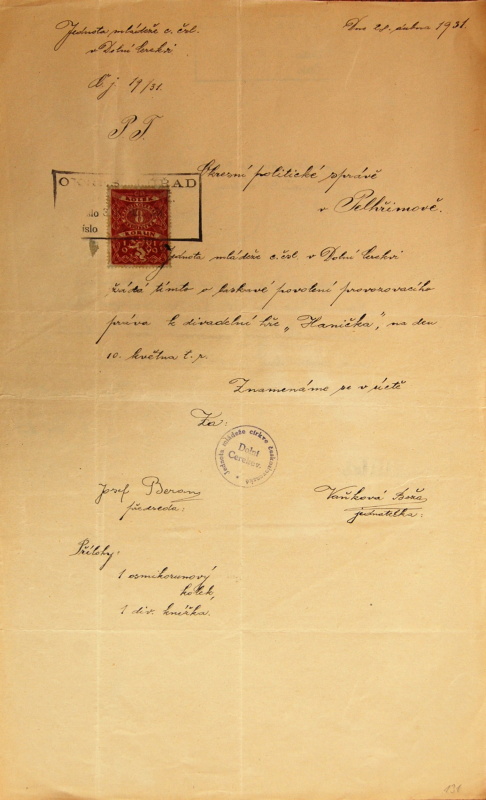 Jednota mládeže c. čsl.
v Dolní Cerekvi
Dne 21. dubna 1931.
Č. j. 19/31.
P. T.
Okresní politické správě
v Pelhřimově.
8
KORUN
Jednota mládeže c. čsl. v Dolní Cerekvi
žádá tímto o laskavé povolení provozovacího
práva k divadelní hře „Hanička", na den
10. května t. r.
Znamenáme se v úctě
Za:
Jednota mládeže církve československé
Dolní
Cerekev.
Josef Beran
předseda:
Vaňková Božа
jednatelka:
Přílohy:
1 osmikorunový
kolek,
1 div. knížka.
131